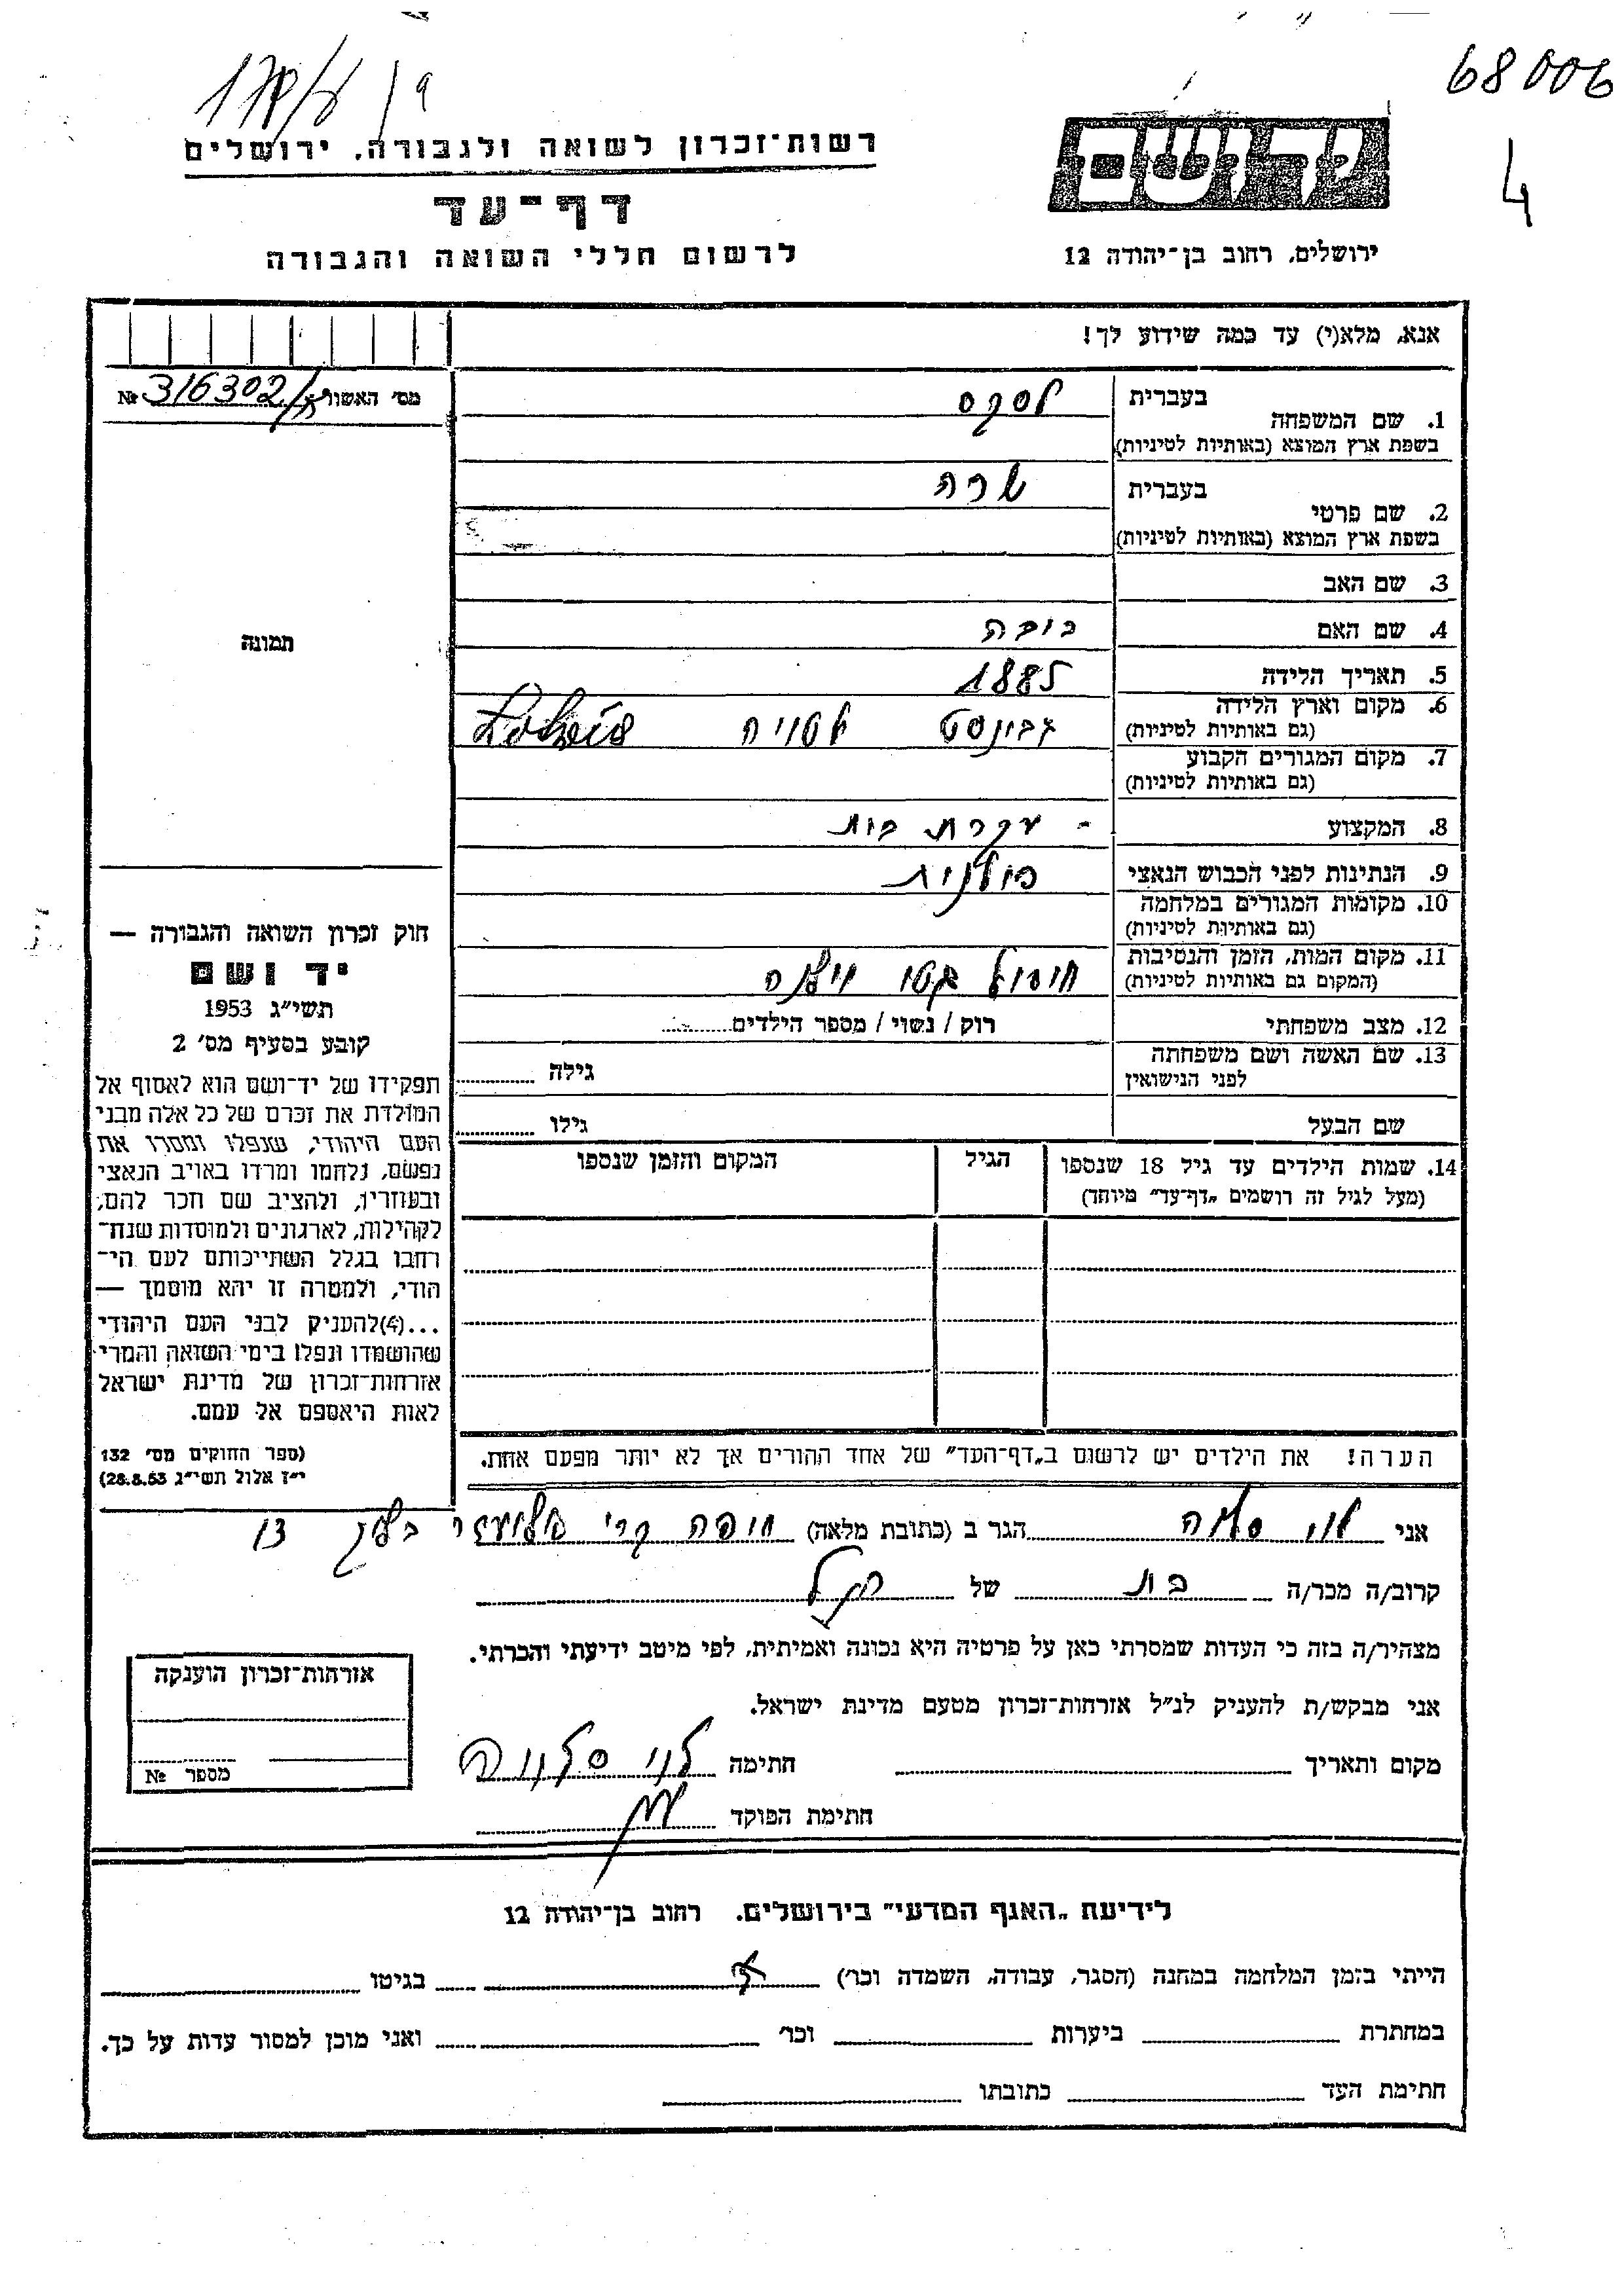 68006
4
רשות־זכרון לשואה ולגבורה, ירושלים
דף־עד
לרשום חללי השואה והגבורה
יד ושם
ירושלים, רחוב בן־יהודה 12
אנא, מלא(י) עד כמה שידוע לך!
מס׳ האשור № 316302
1. שם המשפחה
בעברית לסקס
בשפת ארץ המוצא (באותיות לטיניות)
2. שם פרטי
בעברית שרה
בשפת ארץ המוצא (באותיות לטיניות)
3. שם האב
4. שם האם
5. תאריך הלידה 1885
6. מקום וארץ הלידה דבינסק לטויה
(גם באותיות לטיניות)
7. מקום המגורים הקבוע
(גם באותיות לטיניות)
8. המקצוע עקרת בית
9. הנתינות לפני הכבוש הנאצי פולנית
10. מקומות המגורים במלחמה
(גם באותיות לטיניות)
11. מקום המות, הזמן והנסיבות חיסול גטו וילנה
(המקום גם באותיות לטיניות)
12. מצב משפחתי רוק / נשוי / מספר הילדים
13. שם האשה ושם משפחתה
לפני הנישואין
גילה
שם הבעל גילו
14. שמות הילדים עד גיל 18 שנספו
(מעל לגיל זה רושמים „דף־עד״ מיוחד)
הגיל
המקום והזמן שנספו
הערה! את הילדים יש לרשום ב„דף־העד״ של אחד ההורים אך לא יותר מפעם אחת.
תמונה
חוק זכרון השואה והגבורה —
יד ושם
תשי״ג 1953
קובע בסעיף מס׳ 2
תפקידו של יד־ושם הוא לאסוף אל
המולדת את זכרם של כל אלה מבני
העם היהודי, שנפלו ומסרו את
נפשם, נלחמו ומרדו באויב הנאצי
ובעוזריו, ולהציב שם וזכר להם,
לקהילות, לארגונים ולמוסדות שנח־
רבו בגלל השתייכותם לעם הי־
הודי, ולמטרה זו יהא מוסמך —
...(4)להעניק לבני העם היהודי
שהושמדו ונפלו בימי השואה והמרי
אזרחות־זכרון של מדינת ישראל
לאות היאספם אל עמם.
(ספר החוקים מס׳ 132
י״ז אלול תשי״ג 28.8.53)
אני לוי סלוה הגר ב (כתובת מלאה) חיפה קרי בלוק 13
קרוב/ה מכר/ה בת של הנ״ל
מצהיר/ה בזה כי העדות שמסרתי כאן על פרטיה היא נכונה ואמיתית, לפי מיטב ידיעתי והכרתי.
אני מבקש/ת להעניק לנ״ל אזרחות־זכרון מטעם מדינת ישראל.
מקום ותאריך חתימה לוי סלוה
חתימת הפוקד
אזרחות־זכרון הוענקה
מספר №
לידיעת „האגף המדעי״ בירושלים. רחוב בן־יהודה 12
הייתי בזמן המלחמה במחנה (הסגר, עבודה, השמדה וכר׳) בגיטו
במחתרת ביערות וכר׳ ואני מוכן למסור עדות על כך.
חתימת העד כתובתו